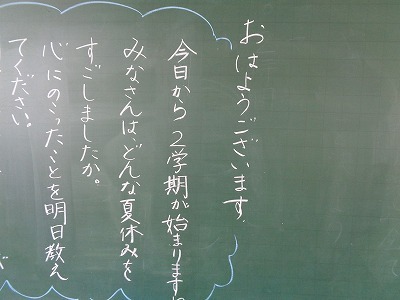 おはようございます。
今日から2学期が始まります
みなさんは、どんな夏休みを
すごしましたか。
心にのこったことを明日教え
てください。